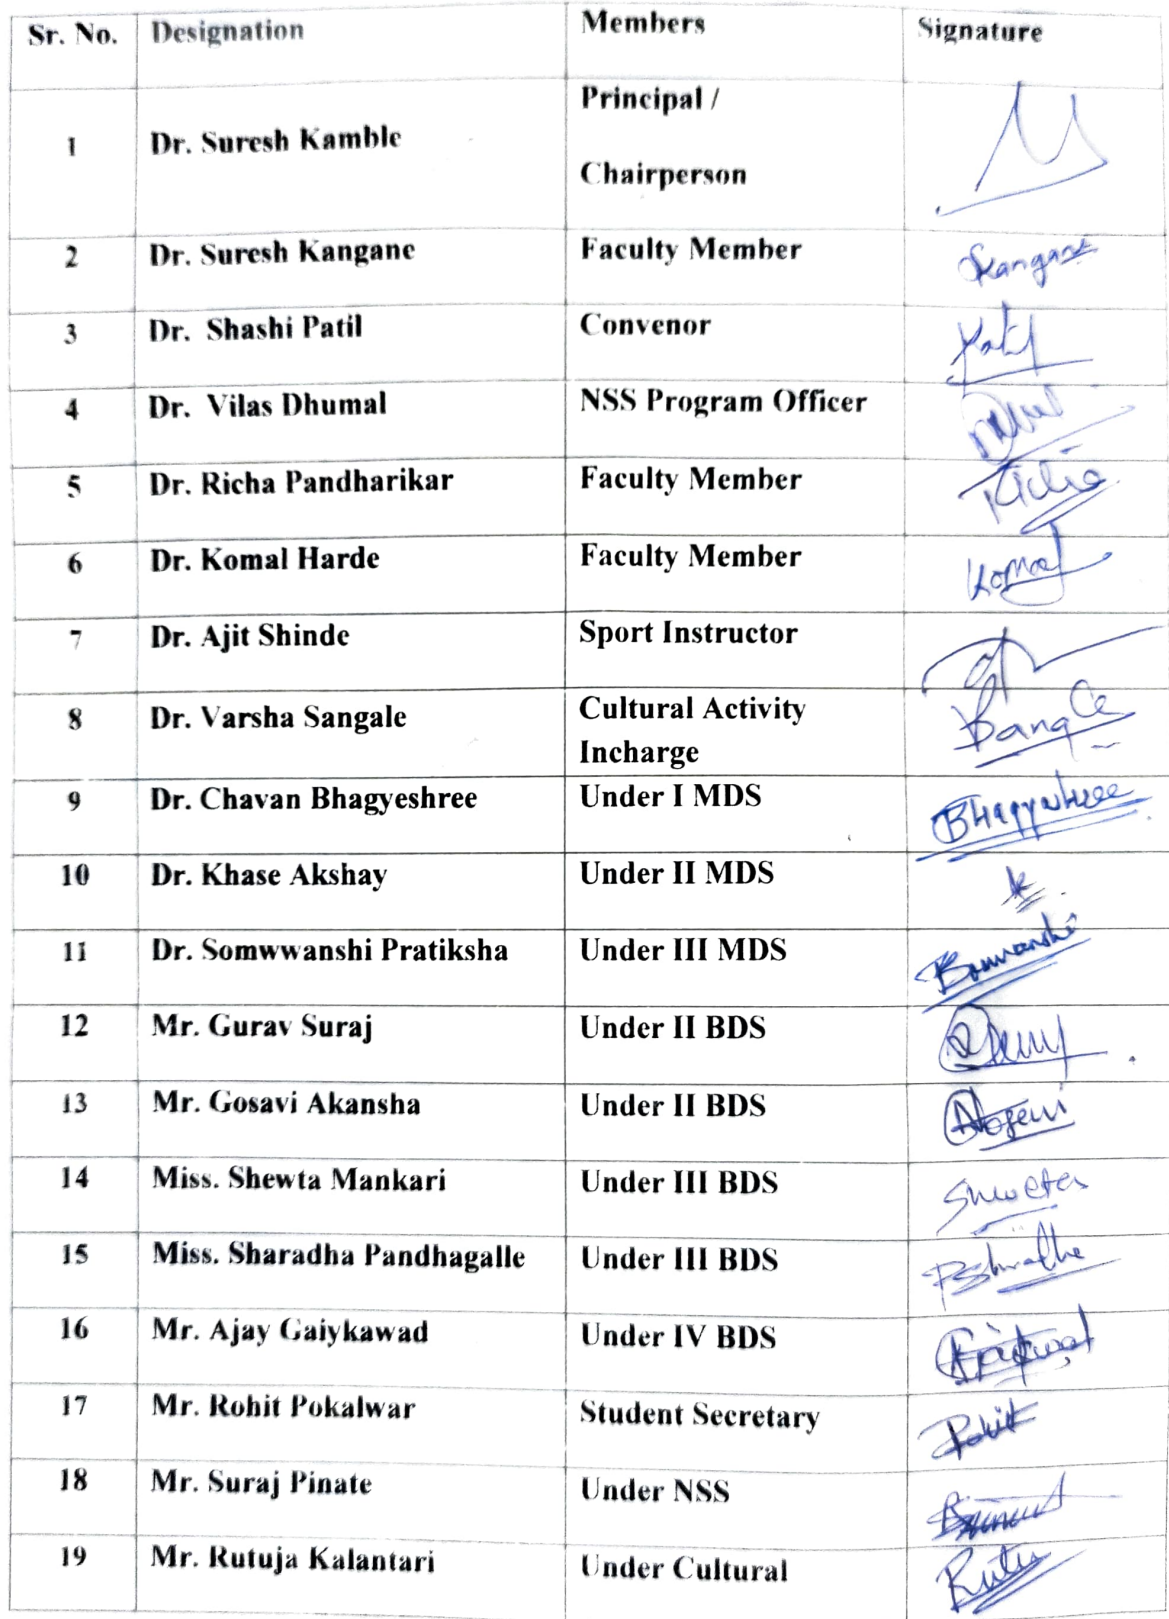 Sr. No. Designation Members Signature
1 Dr. Suresh Kamble Principal /
Chairperson
2 Dr. Suresh Kangane Faculty Member Skangane
3 Dr. Shashi Patil Convenor Patil
4 Dr. Vilas Dhumal NSS Program Officer
5 Dr. Richa Pandharikar Faculty Member Richa
6 Dr. Komal Harde Faculty Member Komal
7 Dr. Ajit Shinde Sport Instructor
8 Dr. Varsha Sangale Cultural Activity
Incharge
9 Dr. Chavan Bhagyeshree Under I MDS Bhagyashree
10 Dr. Khase Akshay Under II MDS
11 Dr. Somwwanshi Pratiksha Under III MDS
12 Mr. Gurav Suraj Under II BDS
13 Mr. Gosavi Akansha Under II BDS
14 Miss. Shewta Mankari Under III BDS Shweta
15 Miss. Sharadha Pandhagalle Under III BDS
16 Mr. Ajay Gaiykawad Under IV BDS
17 Mr. Rohit Pokalwar Student Secretary Rohit
18 Mr. Suraj Pinate Under NSS
19 Mr. Rutuja Kalantari Under Cultural Rutu